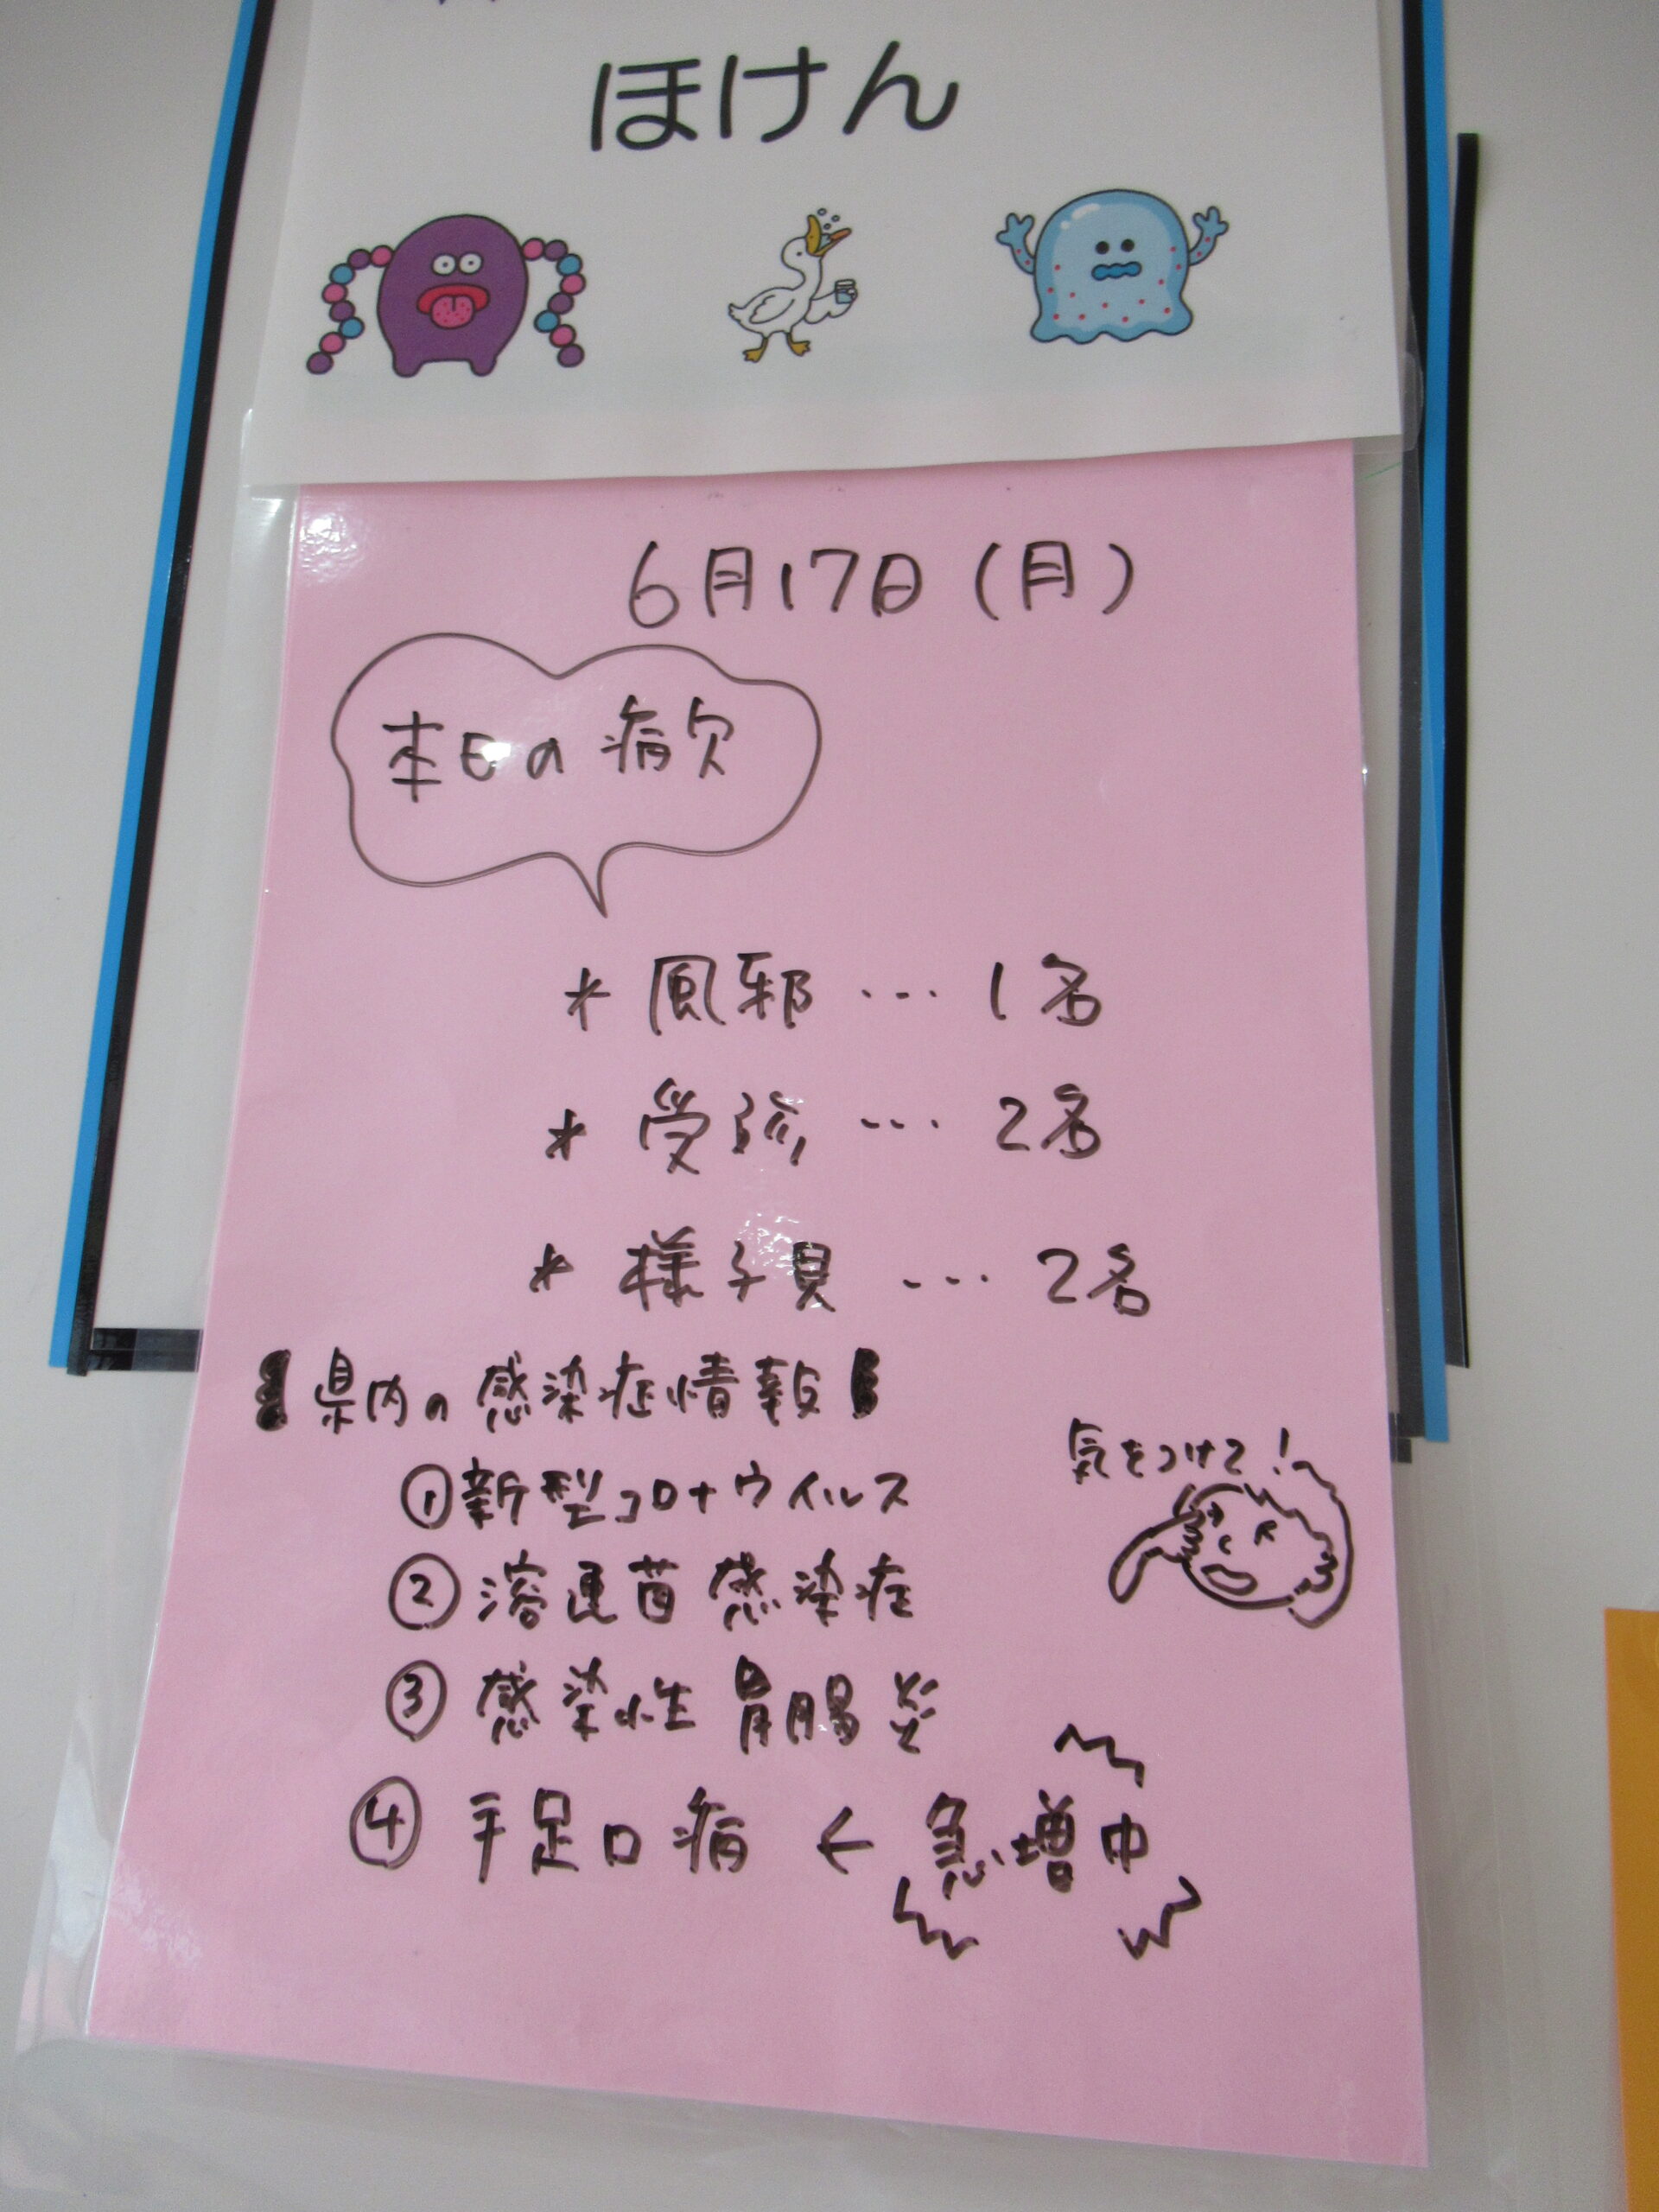 ほけん
6月17日(月)
本日の病欠
* 風邪 … 1名
* 受診 … 2名
* 様子見 … 2名
県内の感染症情報
①新型コロナウイルス
気をつけて!
②溶連菌感染症
③感染性胃腸炎
④手足口病 ← 急増中